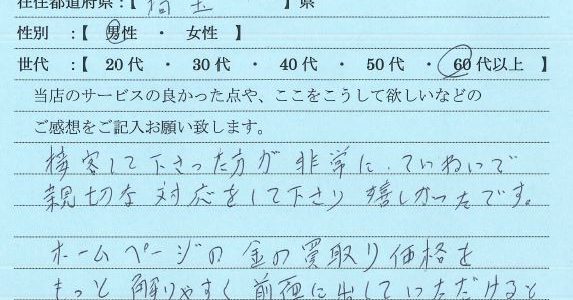 在住都道府県：【 埼玉 】県
性別 ：【 男性 ・ 女性 】
世代 ：【 20代 ・ 30代 ・ 40代 ・ 50代 ・ 60代以上 】
当店のサービスの良かった点や、ここをこうして欲しいなどの
ご感想をご記入お願い致します。
接客して下さった方が 非常に、ていねいで
親切な 対応をして下さり 嬉しかったです。
ホームページの 金の買取り価格を
もっと 解りやすく 前面に出していただけると